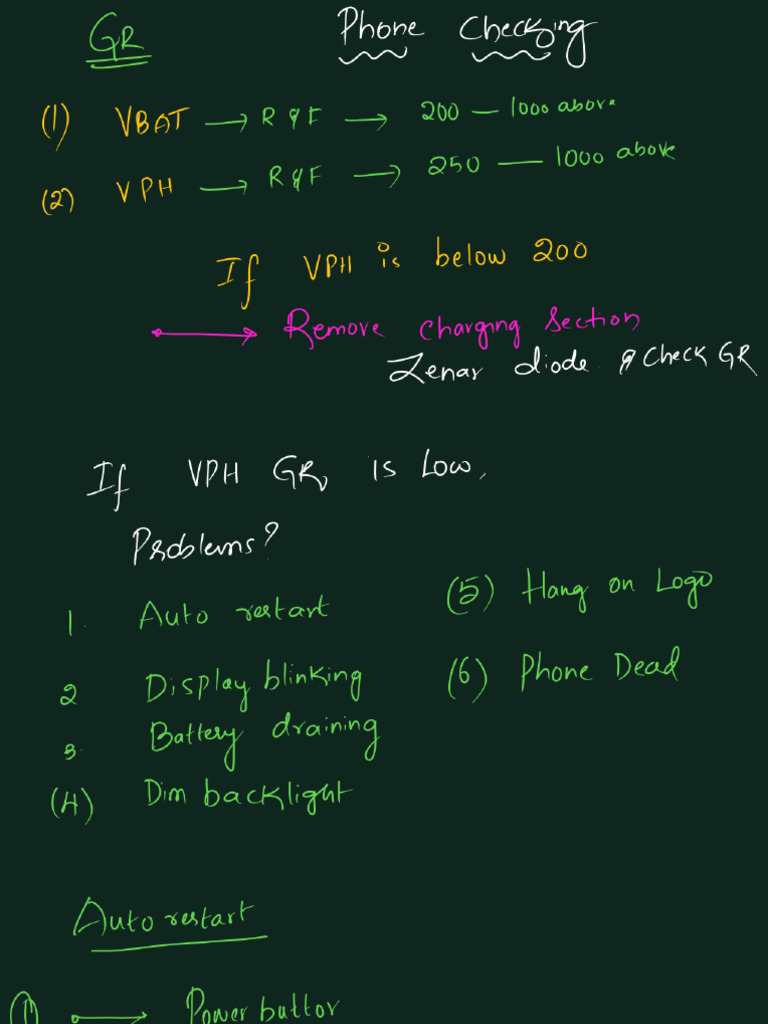 GR Phone Checking
(1) VBAT → R & F → 200 — 1000 above
(2) VPH → R & F → 250 — 1000 above
If VPH is below 200
→ Remove charging section
Zenar diode & check GR
If VPH GR is Low,
Problems?
1. Auto restart
2 Display blinking
3. Battery draining
(4) Dim backlight
(5) Hang on Logo
(6) Phone Dead
Auto restart
(1) → Power buttor